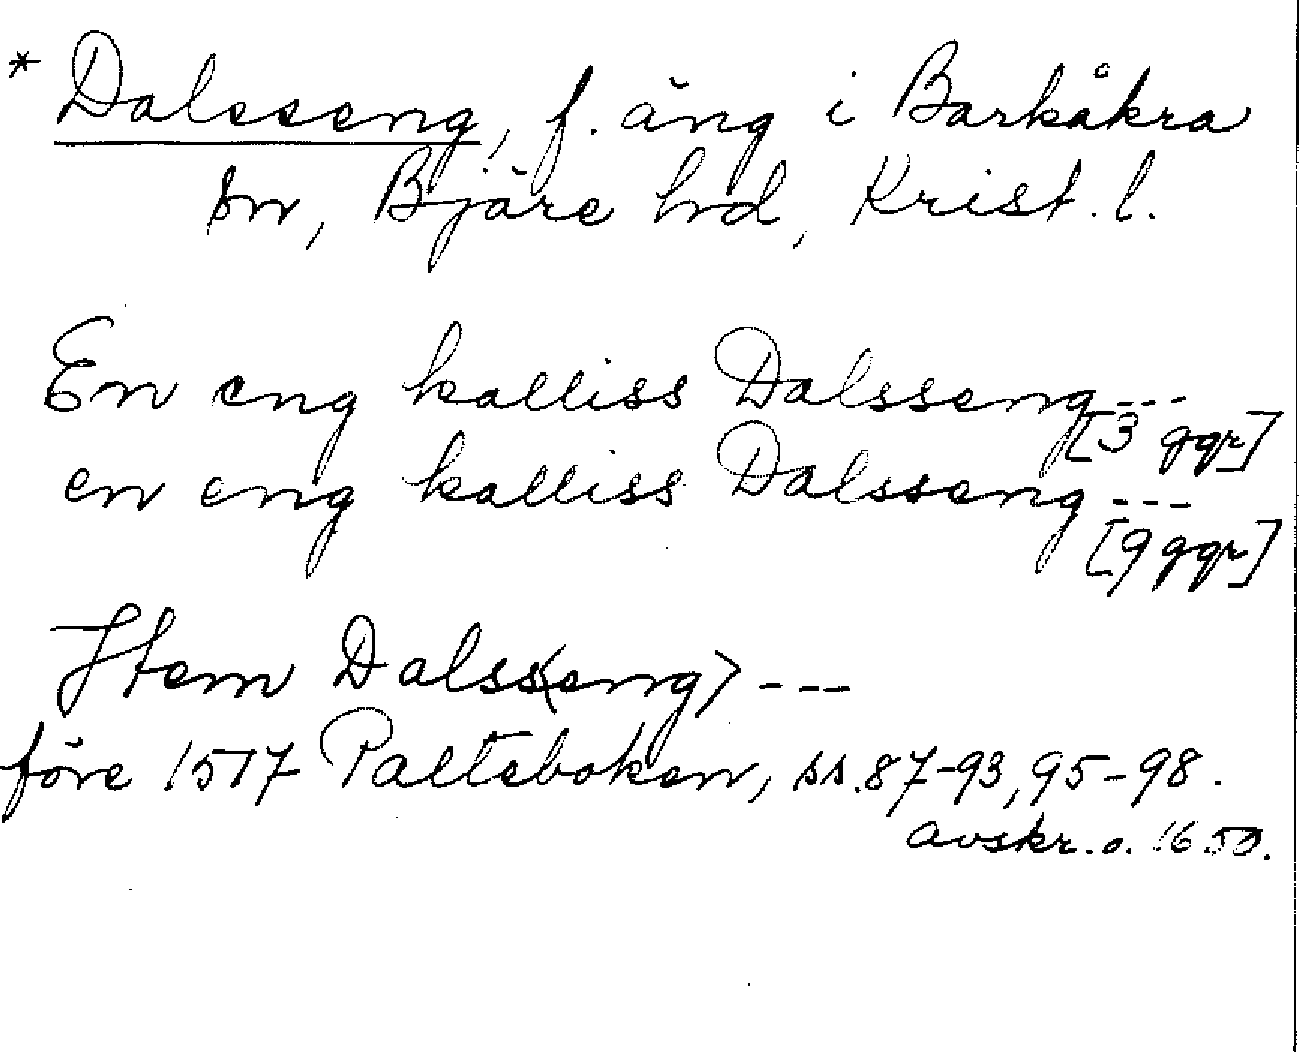 * Dalsseng, f. äng i Barkåkra
sn, Bjäre hd, Krist. l.
En eng kalliss Dalsseng---
[3 ggr]
en eng kalliss Dalsseng---
[9 ggr]
Item Dalss<eng> ---
före 1517 Palteboken, ss. 87-93, 95-98.
avskr. o. 1650.